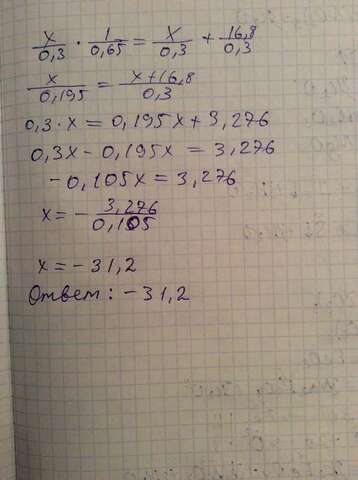 x/0,3 · 1/0,65 = x/0,3 + 16,8/0,3
x/0,195 = x+16,8/0,3
0,3·x = 0,195x + 3,276
0,3x - 0,195x = 3,276
-0,105x = 3,276
x = - 3,276/0,105
x = -31,2
Ответ: -31,2